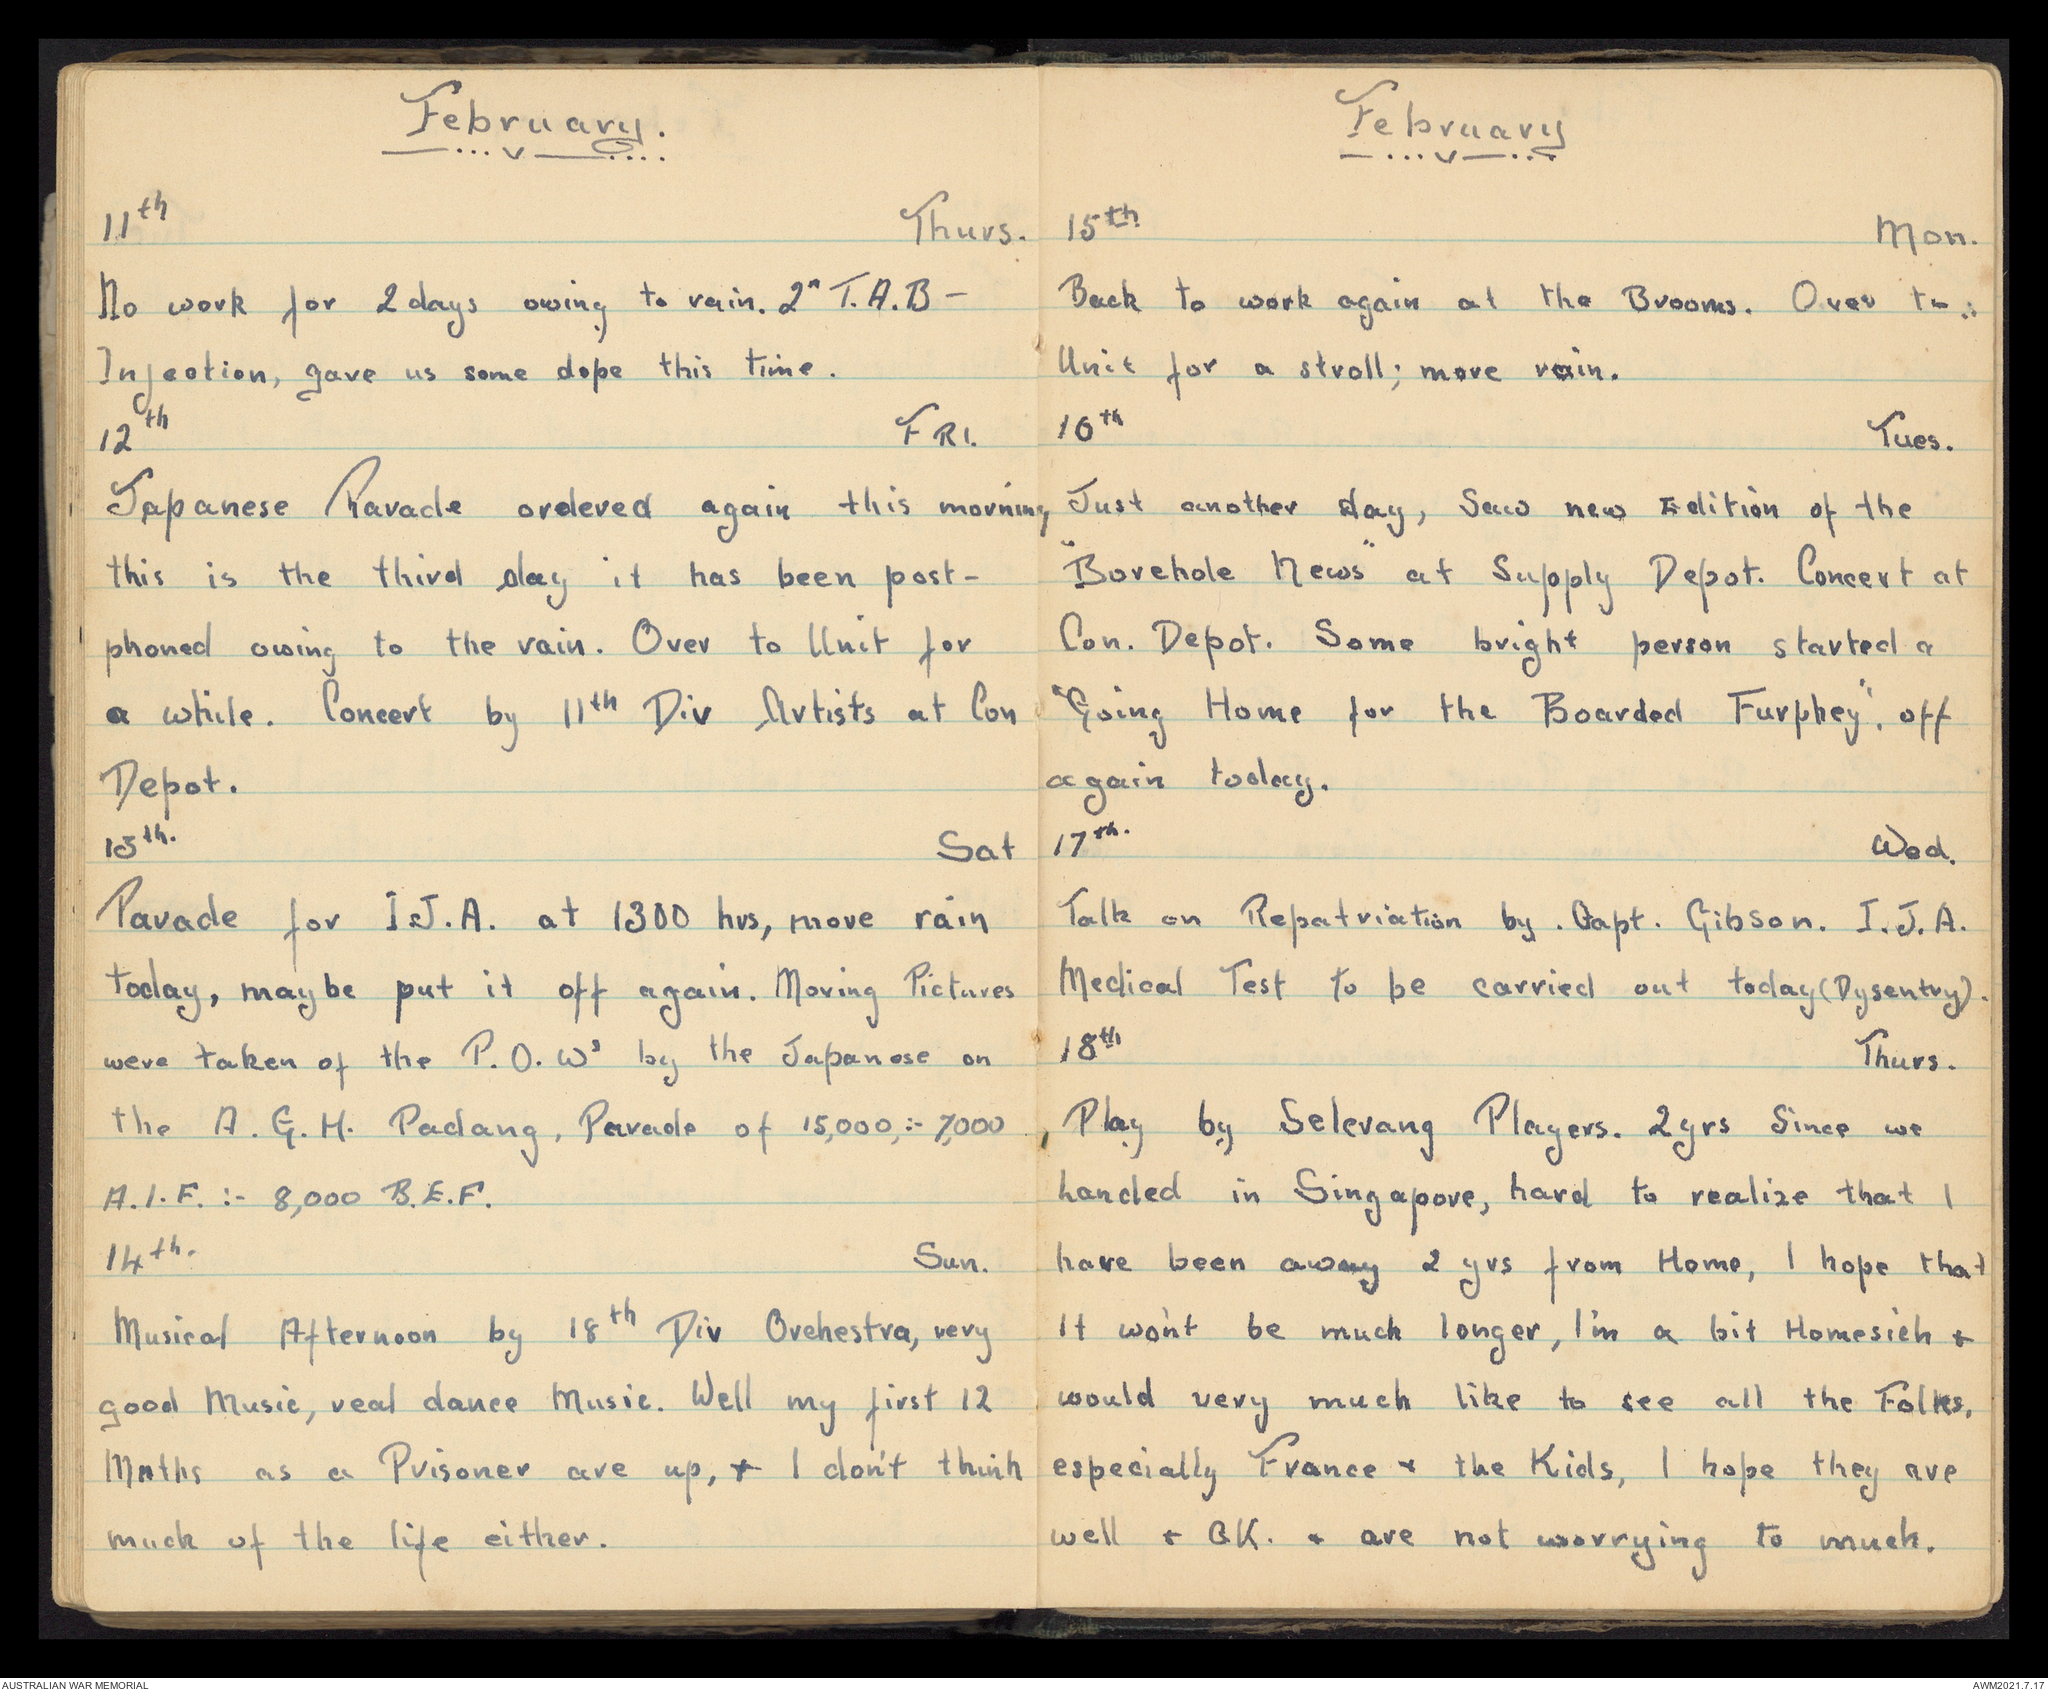 February.
11th Thurs.
No work for 2 days owing to rain. 2n T.A.B -
Injection, gave us some dope this time.
12th FRI.
Japanese Parade ordered again this morning
this is the third day it has been post-
phoned owing to the rain. Over to Unit for
a while. Concert by 11th Div Artists at Con
Depot.
13th. Sat
Parade for I.J.A. at 1300 hrs, more rain
today, maybe put it off again. Moving Pictures
were taken of the P.O.Ws by the Japanese on
the A.G.H. Padang, Parade of 15,000,:- 7,000
A.I.F. :- 8,000 B.E.F.
14th. Sun.
Musical Afternoon by 18th Div Orchestra, very
good Music, real dance Music. Well my first 12
Mnths as a Prisoner are up, + I don't think
much of the life either.
February
15th Mon.
Back to work again at the Brooms. Over to :
Unit for a stroll; more rain.
16th Tues.
Just another day, Saw new Edition of the
"Borehole News" at Supply Depot. Concert at
Con. Depot. Some bright person started a
"Going Home for the Boarded Furphey". off
again today.
17th. Wed.
Talk on Repatriation by . Capt. Gibson. I.J.A.
Medical Test to be carried out today (Dysentry).
18th Thurs.
Play by Selerang Players. 2 yrs Since we
handed in Singapore, hard to realize that I
have been away 2 yrs from Home, I hope that
It won't be much longer, I'm a bit Homesick +
would very much like to see all the Folks,
especially France + the Kids, I hope they are
well + OK. + are not worrying to much.
AUSTRALIAN WAR MEMORIAL AWM2021.7.17